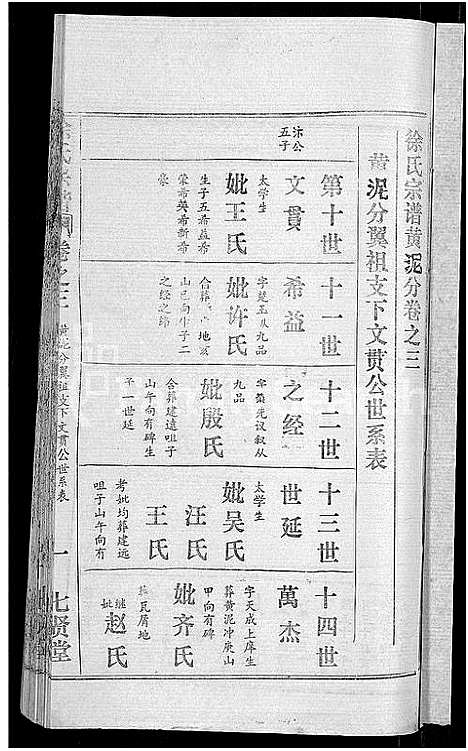 徐氏宗谱黄泥分卷之三
黄泥分翼祖支下文贯公世系表
汴公
五子
第十世
文貫
太学生
妣王氏
生子五希益希
蒙希英希新希
豪
十一世
希益
妣许氏
合葬 地亥
山巳向生子二
之经之纬
十二世
之经
九品
妣殷氏
合葬建遠咀子
山午向有碑生
子一世延
十三世
世延
太学生
妣吴氏
汪氏
王氏
考妣均葬建远
咀子山午向有
十四世
萬杰
字天成上庠生
葬黄泥冲庚山
甲向有碑
妣齐氏
葬瓦屑地
继
妣
赵氏
卷之三
黄泥分翼祖支下文贯公世系表
一
七贤堂